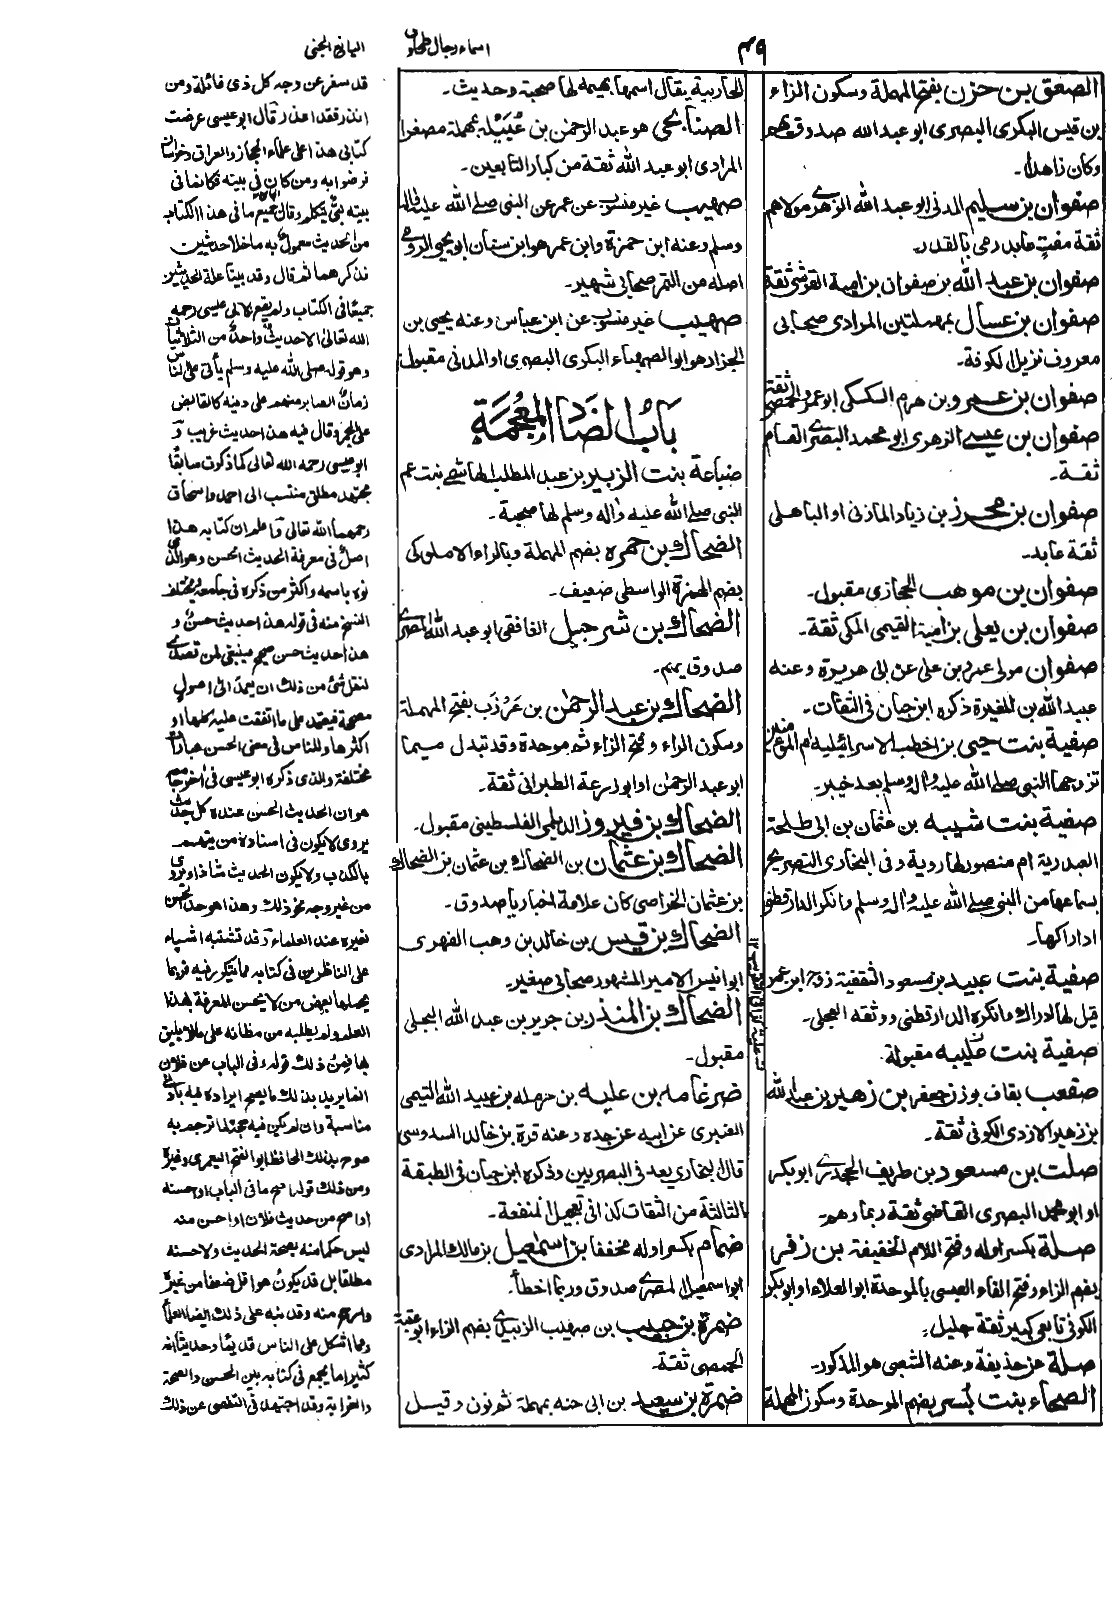 اسماء رجال طحاوى
اليانع الجنى
الصعق بن حزن بفتح المهملة وسكون الزاء
بن قيس البكرى البصرى ابو عبد الله صدوق يهم
وكان زاهدا۔
صفوان بن سليم المدنى ابو عبد الله الزهرى مولاهم
ثقة مفت عابد رمى بالقدر۔
صفوان بن عبد الله بن صفوان بن امية القرشى ثقة
صفوان بن عسال بمهملتين المرادى صحابى
معروف نزيل الكوفة۔
صفوان بن عمرو بن هرم السكسكى ابو عمرو الحمصى ثقة
صفوان بن عيسى الزهرى ابو محمد البصرى القسام
ثقة۔
صفوان بن محرز بن زياد المازنى او الباهلى
ثقة عابد۔
صفوان بن موهب الحجازى مقبول۔
صفوان بن يعلى بن امية التيمى المكى ثقة۔
صفوان مولى عمرو بن على عن ابى هريرة وعنه
عبيد الله بن المغيرة ذكره ابن حبان فى الثقات۔
صفية بنت حيى بن اخطب الاسرائيلية ام المؤمنين
تزوجها النبى صلى الله عليه واله وسلم بعد خيبر۔
صفية بنت شيبه بن عثمان بن ابى طلحة
العبدرية ام منصور لها روية وفى البخارى التصريح
بسماعها من النبى صلى الله عليه واله وسلم وانكر الدارقطنى
ادراكها۔
صفية بنت عبيد بن مسعود الثقفية زوج ابن عمر
قيل لها ادراك وانكره الدارقطنى ووثقه العجلى۔
صفية بنت عليبه مقبولة
صقعب بقاف بوزن جعفر بن زهير بن عبد الله
بن زهير الازدى الكوفى ثقة۔
صلت بن مسعود بن طريف الجحدرى ابو بكر
او ابو محمد البصرى القاضى ثقة ربما وهم۔
صلة بكسر اوله وفتح اللام الخفيفة بن زفر
بضم الزاء وفتح الفاء العبسى بالموحدة ابو العلاء او ابو بكر
الكوفى تابعى كبير ثقة جليل۔
صلة عن حذيفة وعنه الشعبى هو المذكور۔
الصماء بنت بسر بضم الموحدة وسكون المهملة
المحاربية يقال اسمها بهيمه لها صحبة وحديث۔
الصنابحى هو عبد الرحمن بن عسيلة بمهملة مصغرا
المرادى ابو عبد الله ثقة من كبار التابعين۔
صهيب غير منسوب عن عمر عن النبى صلى الله عليه واله
وسلم وعنه ابن حمزة وابن عمر هو ابن سنان ابو يحيى الرومى
اصله من النمر صحابى شهير۔
صهيب غير منسوب عن ابن عباس وعنه يحيى بن
الجزار هو ابو الصهباء البكرى البصرى او المدنى مقبول
باب الضاد المعجمة
ضباعة بنت الزبير بن عبد المطلب الهاشمى بنت عم
النبى صلى الله عليه واله وسلم لها صحبة۔
الضحاك بن حمره بضم المهملة وبالراء الاملوكى
بضم الهمزة الواسطى ضعيف۔
الضحاك بن شرحبيل الغافقى ابو عبد الله المصرى
صدوق يهم۔
الضحاك بن عبد الرحمن بن عرزب بفتح المهملة
وسكون الراء وفتح الزاء ثم موحدة وقد تبدل ميما
ابو عبد الرحمن او ابو زرعة الطبرانى ثقة۔
الضحاك بن فيروز الديلمى الفلسطينى مقبول۔
الضحاك بن عثمان بن الضحاك بن عثمان بن الضحاك
بن عثمان الخزاصى كان علامة اخباريا صدوق۔
الضحاك بن قيس بن خالد بن وهب الفهرى
ابو انيس الامير المشهور صحابى صغير۔
الضحاك بن المنذر بن جرير بن عبد الله البجلى
مقبول۔
ضرغامه بن عليبه بن حرمله بن عبيد الله التيمى
العنبرى عن ابيه عن جده وعنه قرة بن خالد السدوسى
قال البخارى يعد فى البصريين وذكره ابن حبان فى الطبقة
الثالثة من الثقات كذا فى تعجيل المنفعة۔
ضمام بكسر اوله مخففا بن اسمعيل بن مالك المرادى
ابو اسمعيل المصرى صدوق وربما اخطأ۔
ضمرة بن حبيب بن صهيب الزبيدى بضم الزاء ابو عتبة
الحمصى ثقة۔
ضمرة بن سعيد بن ابى حنه بمهملة ثم نون وقيل
قد سفر عن وجه كل ذى قائلة ومن
انذر فقد اعذر قال ابو عيسى عرضت
كتابى هذا على علماء الحجاز والعراق وخراسان
فرضوا به ومن كان فى بيته فكانما فى
بيته نبى يتكلم وقال جميع ما فى هذا الكتاب
من الحديث معمول به ما خلا حديثين
فذكرهما ثم قال وقد بينا علة الحديثين
جميعا فى الكتاب ولم يقع لابى عيسى رحمه
الله تعالى الا حديث واحد من الثلاثيات
وهو قوله صلى الله عليه وسلم يأتى على الناس
زمان الصابر منهم على دينه كالقابض
على الجمر وقال فيه هذا حديث غريب و
ابو عيسى رحمه الله تعالى كما ذكرت سابقا
مجتهد مطلق منتسب الى احمد واسحاق
رحمهما الله تعالى واعلم ان كتابه هذا
اصل فى معرفة الحديث الحسن وهو الذى
نوه باسمه واكثر من ذكره فى جامعه ويختلف
النسخ منه فى قوله هذا حديث حسن و
هذا حديث حسن صحيح فينبغى لمن تصدى
لنقل شئ من ذلك ان يعمد الى اصول
مصححة فيعتمد على ما اتفقت عليه كلها او
اكثرها وللناس فى معنى الحسن عبارات
مختلفة والذى ذكره ابو عيسى فى اخر جامعه
هو ان الحديث الحسن عنده كل حديث
يروى لا يكون فى اسناده من يتهم
بالكذب ولا يكون الحديث شاذا ويروى
من غير وجه نحو ذلك وهذا هو حد الحسن
لغيره عند العلماء وقد تشتبه اشياء
على الناظرين فى كتابه مما يتكرر فيه فربما
يحملها بعض من لا يحسن المعرفة بهذا
العلم ولم يطلبه من مظانه على ما لا يليق
بها فمن ذلك قوله وفى الباب عن فلان
انما يريد بذلك ما يصح ايراده فيه بادنى
مناسبة وان لم يكن فيه حجة لما ترجم به
صرح بذلك الحافظ ابو الفتح اليعمرى وغيره
ومن ذلك قوله اصح ما فى الباب او احسنه
او اصح من حديث فلان او احسن منه
ليس حكما منه بصحة الحديث ولا حسنه
مطلقا بل قد يكون هو اقل ضعفا من غيره
وارجح منه وقد نبه على ذلك ايضا العلماء
ومما اشكل على الناس قديما وحديثا انه
كثيرا ما يجمع فى كتابه بين الحسن والصحة
والغرابة وقد اجتهد فى التفصى عن ذلك